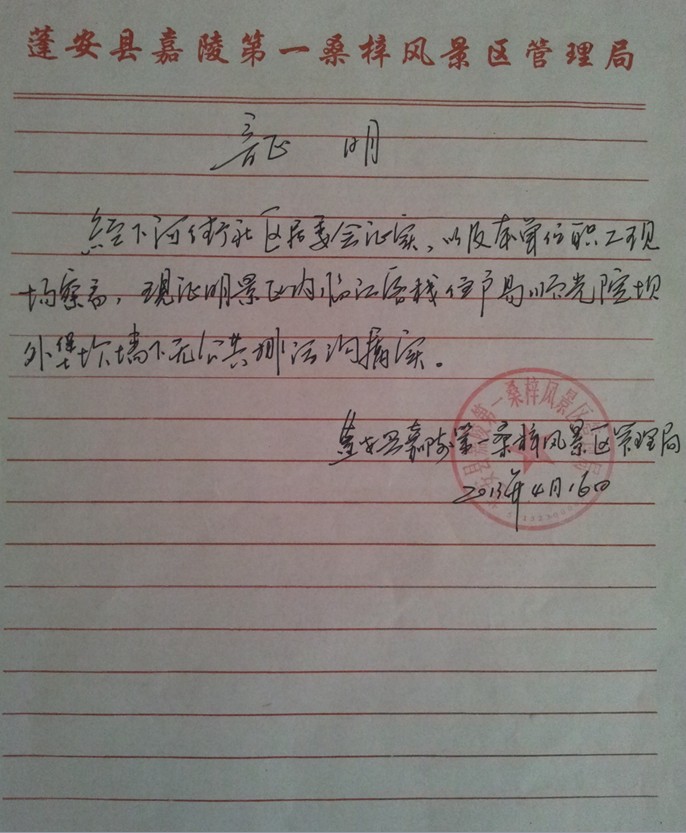 蓬安县嘉陵第一桑梓风景区管理局
证明
经下河街社区居委会证实，以及本单位职工现
场察看，现证明景区内临江客栈住户易顺光院坝
外堡坎墙下无公共排污沟属实。
蓬安县嘉陵第一桑梓风景区管理局
2013年4月16日